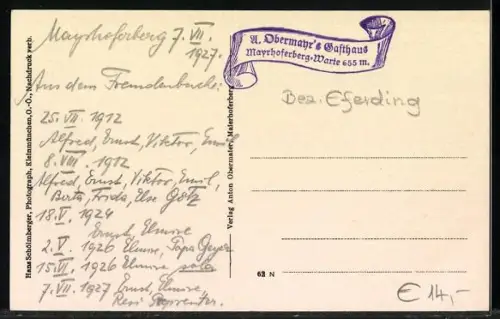 Mayrhoferberg 7. VII. 1927.
Aus dem Fremdenbuche:
25. VII. 1912
Alfred, Ernst, Viktor, Emil
8. VIII. 1912
Alfred, Ernst, Viktor, Emil,
Berta, Frida, Else Götz
18. V. 1924
Ernst, Elmire
2. V. 1926 Elmire, Papa Geyer
15. VI. 1926 Elmire, solo
7. VII. 1927 Ernst, Elmire,
Resi
Hans Schönberger, Photograph, Kleinmünchen, O.-Ö., Nachdruck verb.
Verlag Anton Obermaier, Maierhoferberg
A. Obermayr's Gasthaus
Mayrhoferberg-Warte 655 m.
Bez. Eferding
62 N
€ 14,-